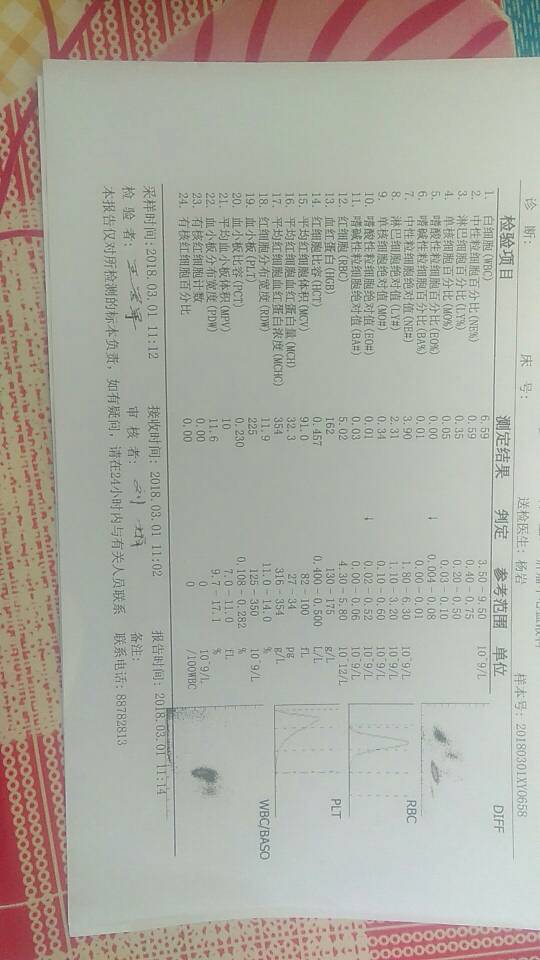 诊 断: 床 号: 送检医生: 杨岩 样本号: 20180301XY0658
检验项目 测定结果 判定 参考范围 单位 DIFF
1. 白细胞(WBC) 6.59 3.50-9.50 10^9/L
2. 中性粒细胞百分比(NE%) 0.59 0.40-0.75
3. 淋巴细胞百分比(LY%) 0.35 0.20-0.50
4. 单核细胞百分比(MO%) 0.05 0.03-0.10
5. 嗜酸性粒细胞百分比(EO%) 0.00 ↓ 0.004-0.08
6. 嗜碱性粒细胞百分比(BA%) 0.01 0.00-0.01
7. 中性粒细胞绝对值(NE#) 3.90 1.80-6.30 10^9/L
8. 淋巴细胞绝对值(LY#) 2.31 1.10-3.20 10^9/L
9. 单核细胞绝对值(MO#) 0.34 0.10-0.60 10^9/L
10. 嗜酸性粒细胞绝对值(EO#) 0.01 ↓ 0.02-0.52 10^9/L
11. 嗜碱性粒细胞绝对值(BA#) 0.03 0.00-0.06 10^9/L
12. 红细胞(RBC) 5.02 4.30-5.80 10^12/L
13. 血红蛋白(HGB) 162 130-175 g/L
14. 红细胞比容(HCT) 0.457 0.400-0.500 L/L
15. 平均红细胞体积(MCV) 91.0 82-100 fL
16. 平均红细胞血红蛋白量(MCH) 32.3 27-34 pg
17. 平均红细胞血红蛋白浓度(MCHC) 354 316-354 g/L
18. 红细胞分布宽度(RDW) 11.9 11.0-14.0 %
19. 血小板(PLT) 225 125-350 10^9/L
20. 血小板比容(PCT) 0.230 0.108-0.282 %
21. 平均血小板体积(MPV) 10 7.0-11.0 fL
22. 血小板分布宽度(PDW) 11.6 9.7-17.1 %
23. 有核红细胞计数 0.00 0 10^9/L
24. 有核红细胞百分比 0.00 0 /100WBC
RBC
PLT
WBC/BASO
采样时间: 2018.03.01 11:12 接收时间: 2018.03.01 11:02 报告时间: 2018.03.01 11:14
检 验 者: 审 核 者: 备注:
本报告仅对所检测的标本负责, 如有疑问, 请在24小时内与有关人员联系 联系电话: 88782813